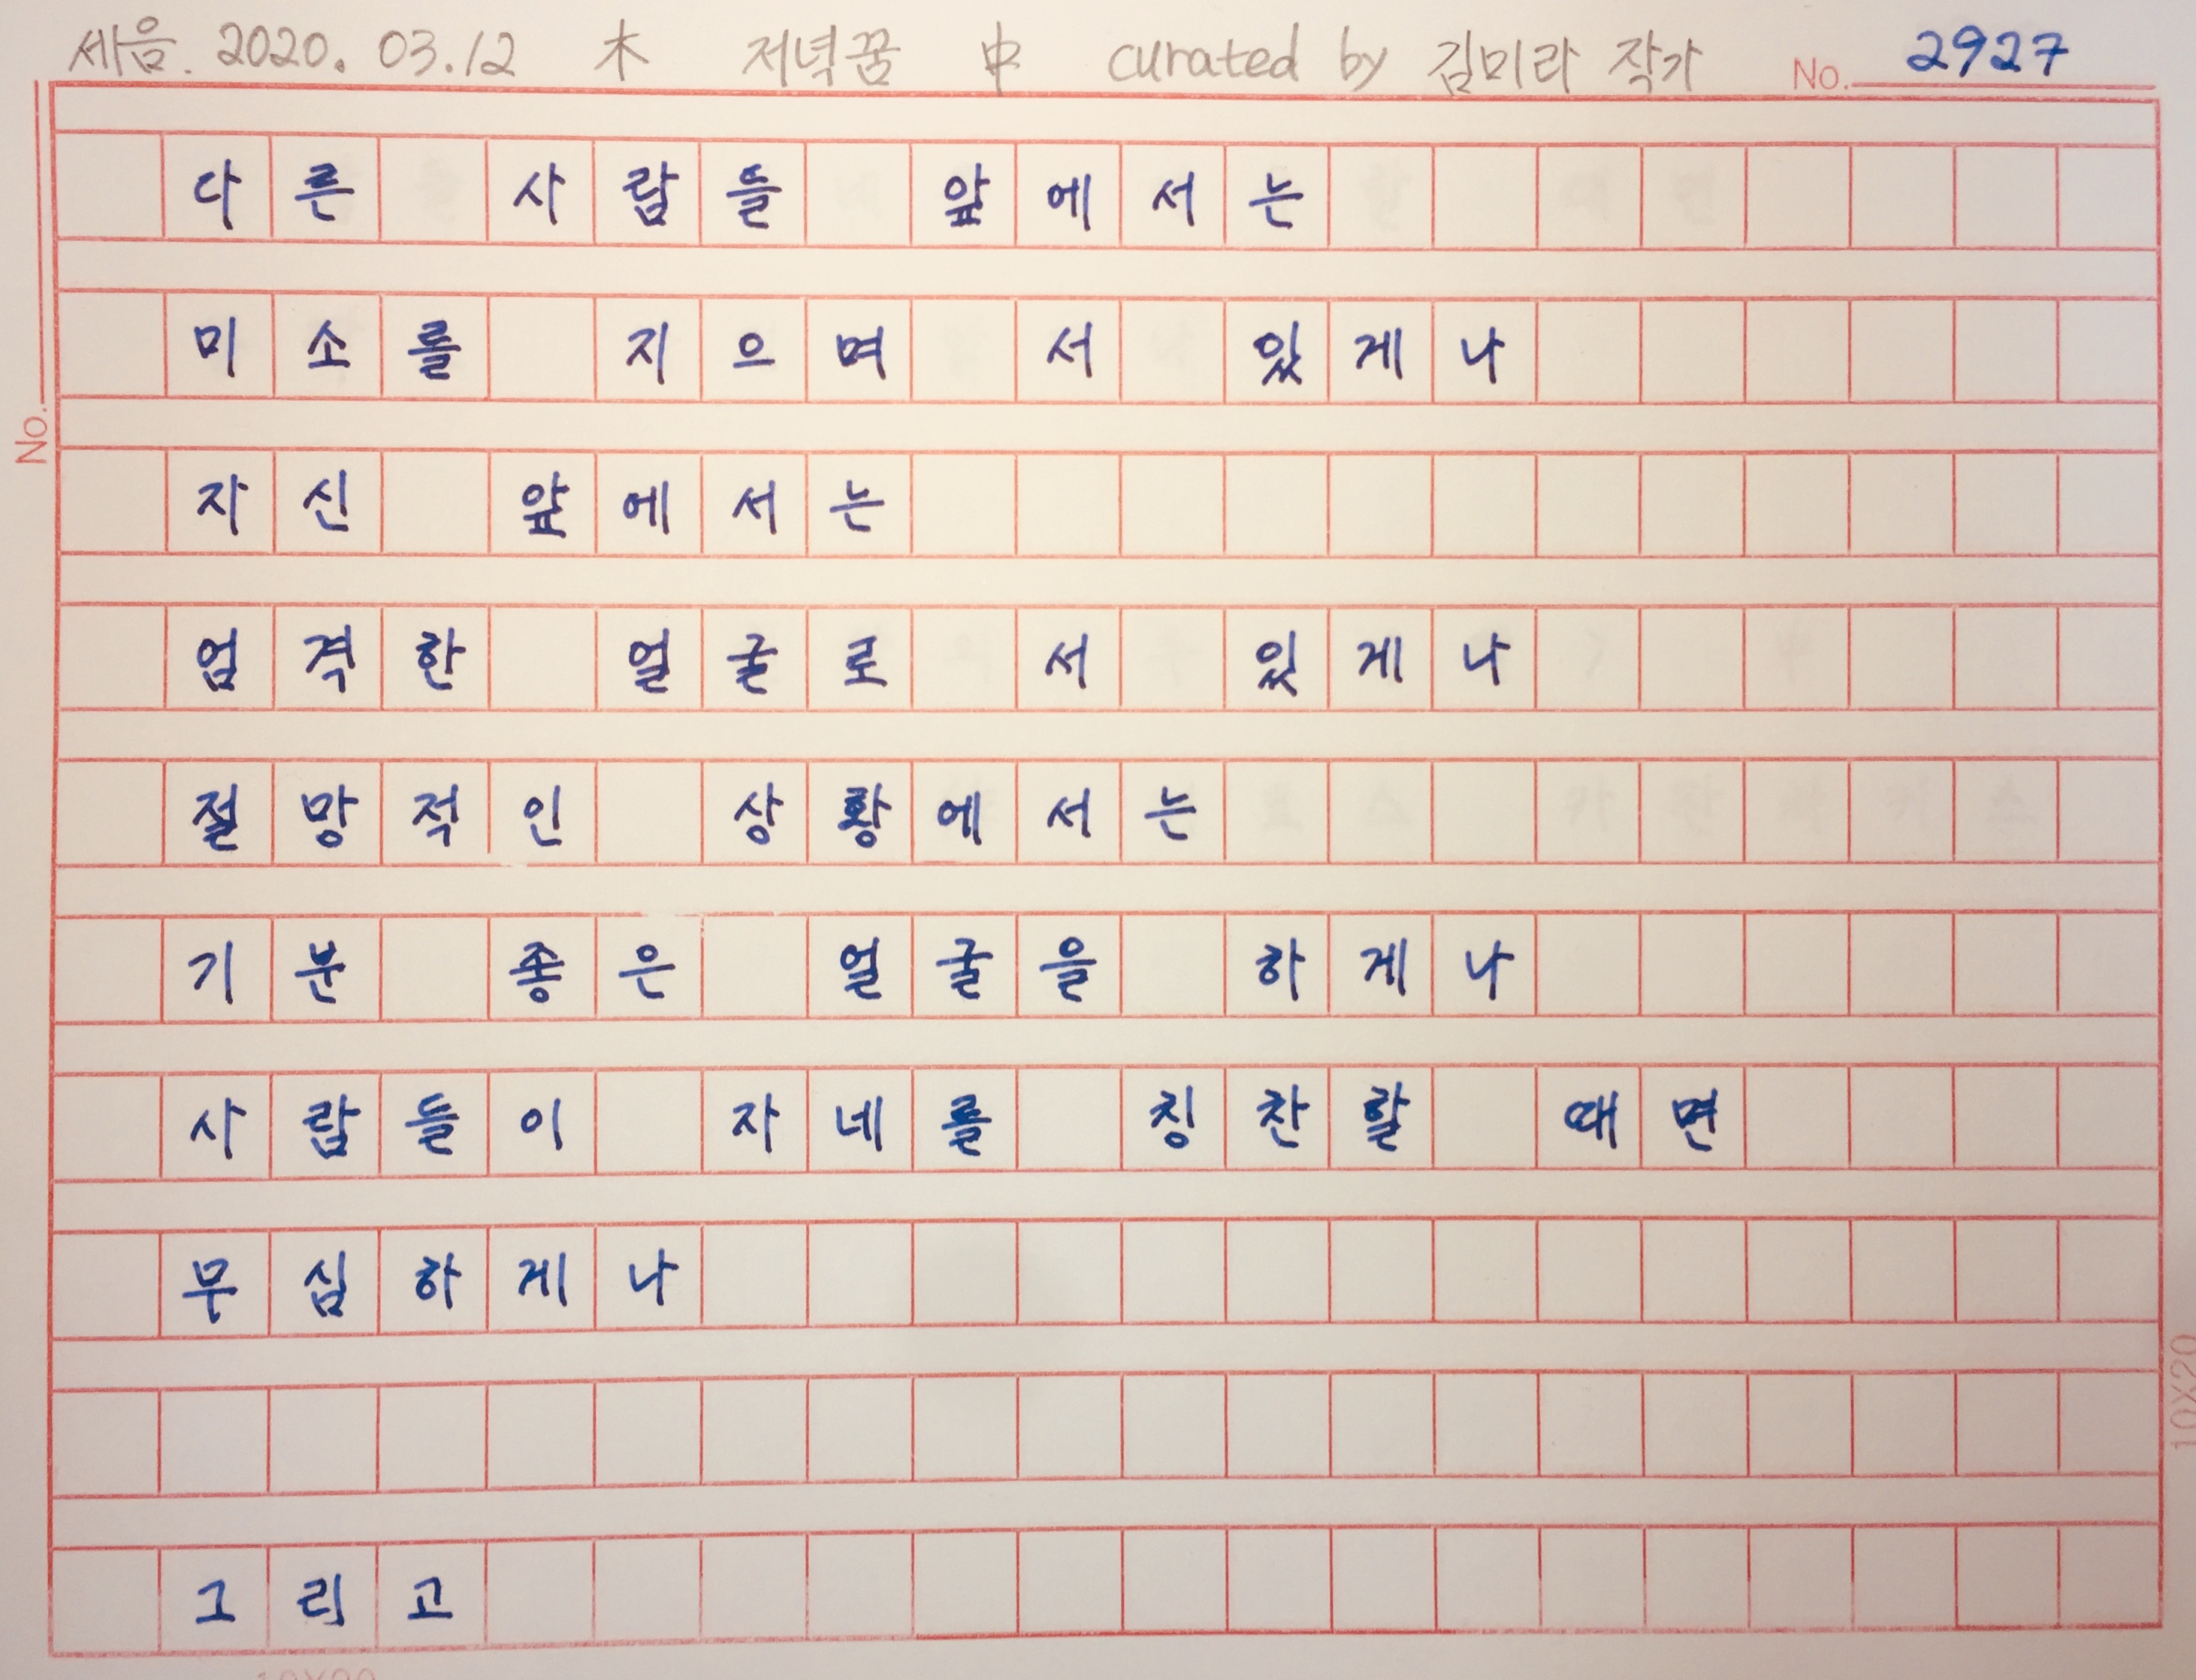 세음. 2020. 03.12 木 저녁꿈 中 curated by 김미라 작가 No. 2927
다른 사람들 앞에서는
미소를 지으며 서 있게나
No.
자신 앞에서는
엄격한 얼굴로 서 있게나
절망적인 상황에서는
기분 좋은 얼굴을 하게나
사람들이 자네를 칭찬할 때면
무심하게나
그리고
10X20
10X20